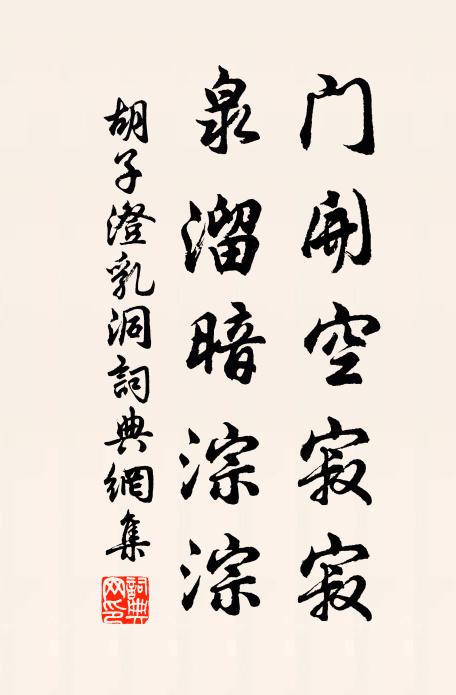 门开空寂寂
泉溜暗淙淙
胡子澄乳洞詞典網集
詞典网印